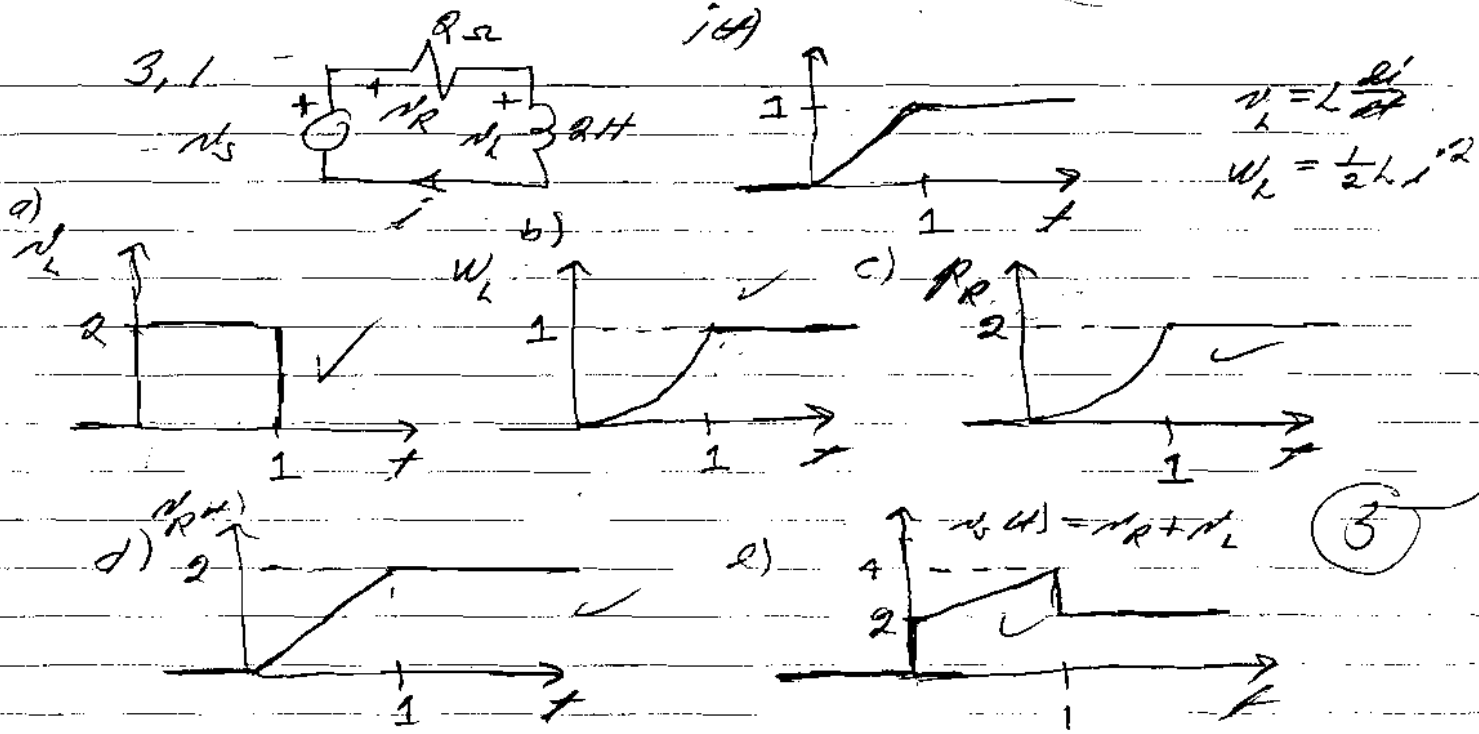 3,1
2Ω
+ v_R
+
v_s
+
v_L
2H
i
i(t)
1
1
t
v_L = L di/dt
W_L = 1/2 L i^2
a)
v_L
2
1
t
b)
W_L
1
1
t
c)
P_R
2
1
t
d)
v_R(t)
2
1
t
e)
v_s(t) = v_R + v_L
4
2
1
t
3